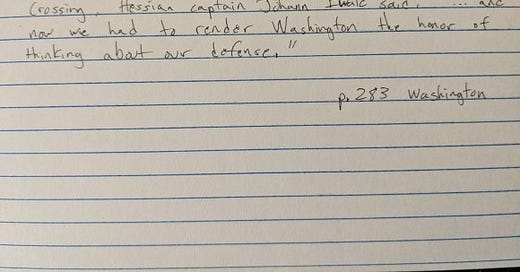 Crossing, Hessian captain Johann Ewald said, "... and
now we had to render Washington the honor of
thinking about our defense."
p. 283 Washington